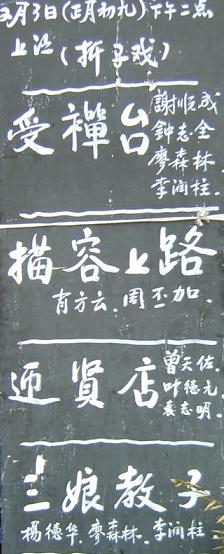 2月3日(正月初九)下午二点
上演(折子戏)
受禪台
謝顺成
鈡志全
廖森林
李润柱
描容上路
肖方云.周丕加.
迎賢店
曾天佐
叶德元
袁志明.
三娘教子
楊德华.廖森林.李润柱